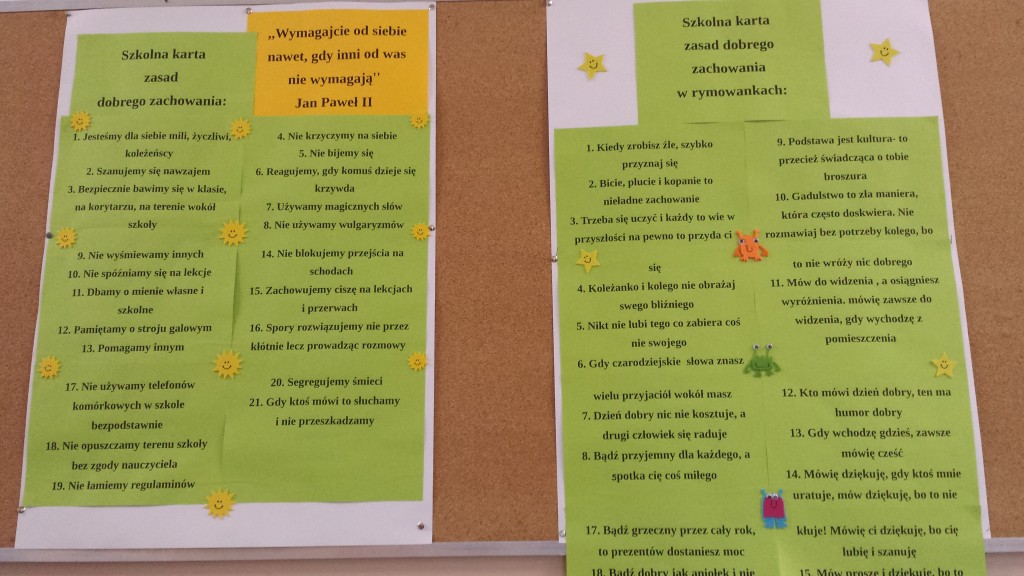 Szkolna karta
zasad
dobrego zachowania:
,,Wymagajcie od siebie
nawet, gdy inni od was
nie wymagają''
Jan Paweł II
1. Jesteśmy dla siebie mili, życzliwi,
koleżeńscy
2. Szanujemy się nawzajem
3. Bezpiecznie bawimy się w klasie,
na korytarzu, na terenie wokół
szkoły
4. Nie krzyczymy na siebie
5. Nie bijemy się
6. Reagujemy, gdy komuś dzieje się
krzywda
7. Używamy magicznych słów
8. Nie używamy wulgaryzmów
9. Nie wyśmiewamy innych
10. Nie spóźniamy się na lekcje
11. Dbamy o mienie własne i
szkolne
12. Pamiętamy o stroju galowym
13. Pomagamy innym
14. Nie blokujemy przejścia na
schodach
15. Zachowujemy ciszę na lekcjach
i przerwach
16. Spory rozwiązujemy nie przez
kłótnie lecz prowadząc rozmowy
17. Nie używamy telefonów
komórkowych w szkole
bezpodstawnie
18. Nie opuszczamy terenu szkoły
bez zgody nauczyciela
19. Nie łamiemy regulaminów
20. Segregujemy śmieci
21. Gdy ktoś mówi to słuchamy
i nie przeszkadzamy
Szkolna karta
zasad dobrego
zachowania
w rymowankach:
1. Kiedy zrobisz źle, szybko
przyznaj się
2. Bicie, plucie i kopanie to
nieładne zachowanie
3. Trzeba się uczyć i każdy to wie w
przyszłości na pewno to przyda ci
się
4. Koleżanko i kolego nie obrażaj
swego bliźniego
5. Nikt nie lubi tego co zabiera coś
nie swojego
6. Gdy czarodziejskie słowa znasz
wielu przyjaciół wokół masz
7. Dzień dobry nic nie kosztuje, a
drugi człowiek się raduje
8. Bądź przyjemny dla każdego, a
spotka cię coś miłego
9. Podstawa jest kultura- to
przecież świadcząca o tobie
broszura
10. Gadulstwo to zła maniera,
która często doskwiera. Nie
rozmawiaj bez potrzeby kolego, bo
to nie wróży nic dobrego
11. Mów do widzenia , a osiągniesz
wyróżnienia. mówię zawsze do
widzenia, gdy wychodzę z
pomieszczenia
12. Kto mówi dzień dobry, ten ma
humor dobry
13. Gdy wchodzę gdzieś, zawsze
mówię cześć
14. Mówię dziękuję, gdy ktoś mnie
uratuje, mów dziękuję, bo to nie
kłuje! Mówię ci dziękuję, bo cię
lubię i szanuję
15. Mów proszę i dziękuję, bo to
17. Bądź grzeczny przez cały rok,
to prezentów dostaniesz moc
18. Bądź dobry jak aniołek i nie